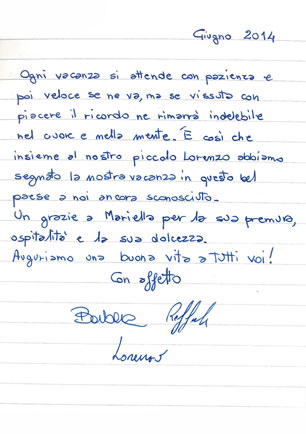 Giugno 2014
Ogni vacanza si attende con pazienza e
poi veloce se ne va, ma se vissuta con
piacere il ricordo ne rimarrà indelebile
nel cuore e nella mente. È così che
insieme al nostro piccolo Lorenzo abbiamo
segnato la nostra vacanza in questo bel
paese a noi ancora sconosciuto.
Un grazie a Mariella per la sua premura,
ospitalità e la sua dolcezza.
Auguriamo una buona vita a tutti voi!
Con affetto
Barbara
Lorenzo